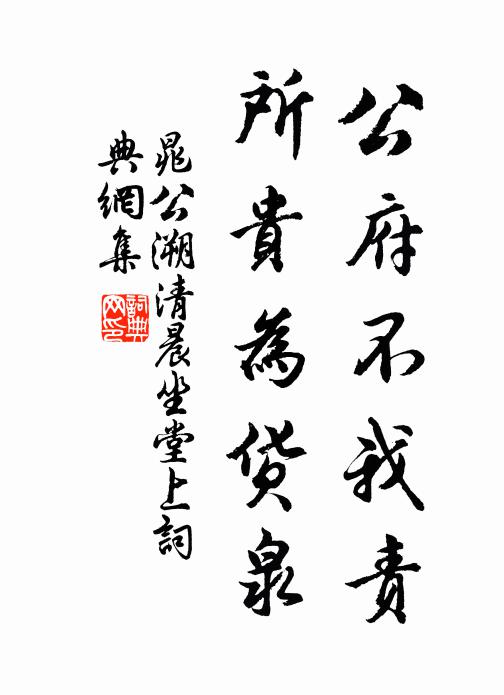 公府不我責
所貴為貨泉
晁公溯清晨坐堂上詞
典網集
詞典
网印